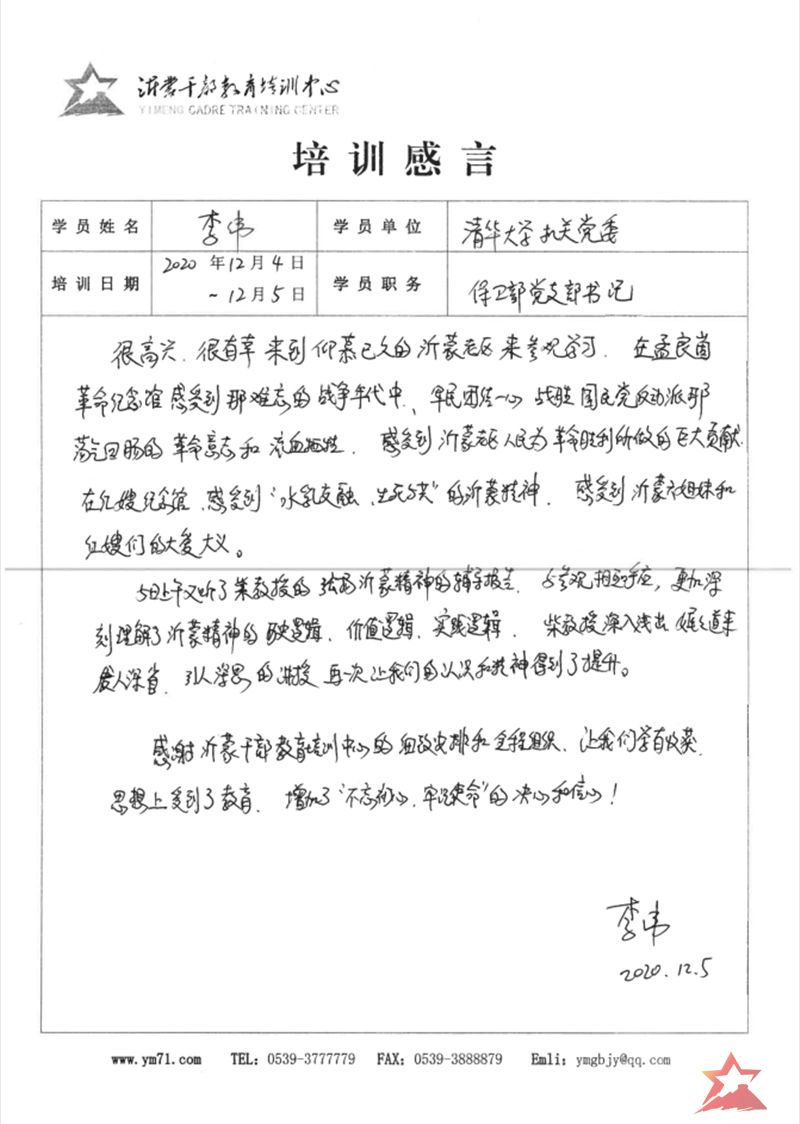 沂蒙干部教育培训中心
YIMENG CADRE TRAINING CENTER
培训感言
学员姓名 李伟 学员单位 清华大学机关党委
培训日期 2020年12月4日 ~12月5日 学员职务 保卫部党支部书记
很高兴、很有幸来到仰慕已久的沂蒙老区来参观学习。在孟良崮
革命纪念馆感受到那难忘的战争年代中、军民团结一心战胜国民党反动派那
荡气回肠的革命意志和流血牺牲。感受到沂蒙老区人民为革命胜利所做的巨大贡献.
在红嫂纪念馆、感受到“水乳交融、生死与共”的沂蒙精神。感受到沂蒙六姐妹和
红嫂们的大爱大义。
5日上午又听了柴教授的弘扬沂蒙精神的辅导报告、与参观相呼应，更加深
刻理解了沂蒙精神的历史逻辑、价值逻辑、实践逻辑。柴教授深入浅出 娓娓道来
发人深省、引人深思的讲授 再次让我们的认识和精神得到了提升。
感谢沂蒙干部教育培训中心的细致安排和全程组织、让我们学有收获、
思想上受到了教育、增加了“不忘初心、牢记使命”的决心和信心！
李伟
2020.12.5
www.ym71.com TEL: 0539-3777779 FAX: 0539-3888879 Emli: ymgbjy@qq.com